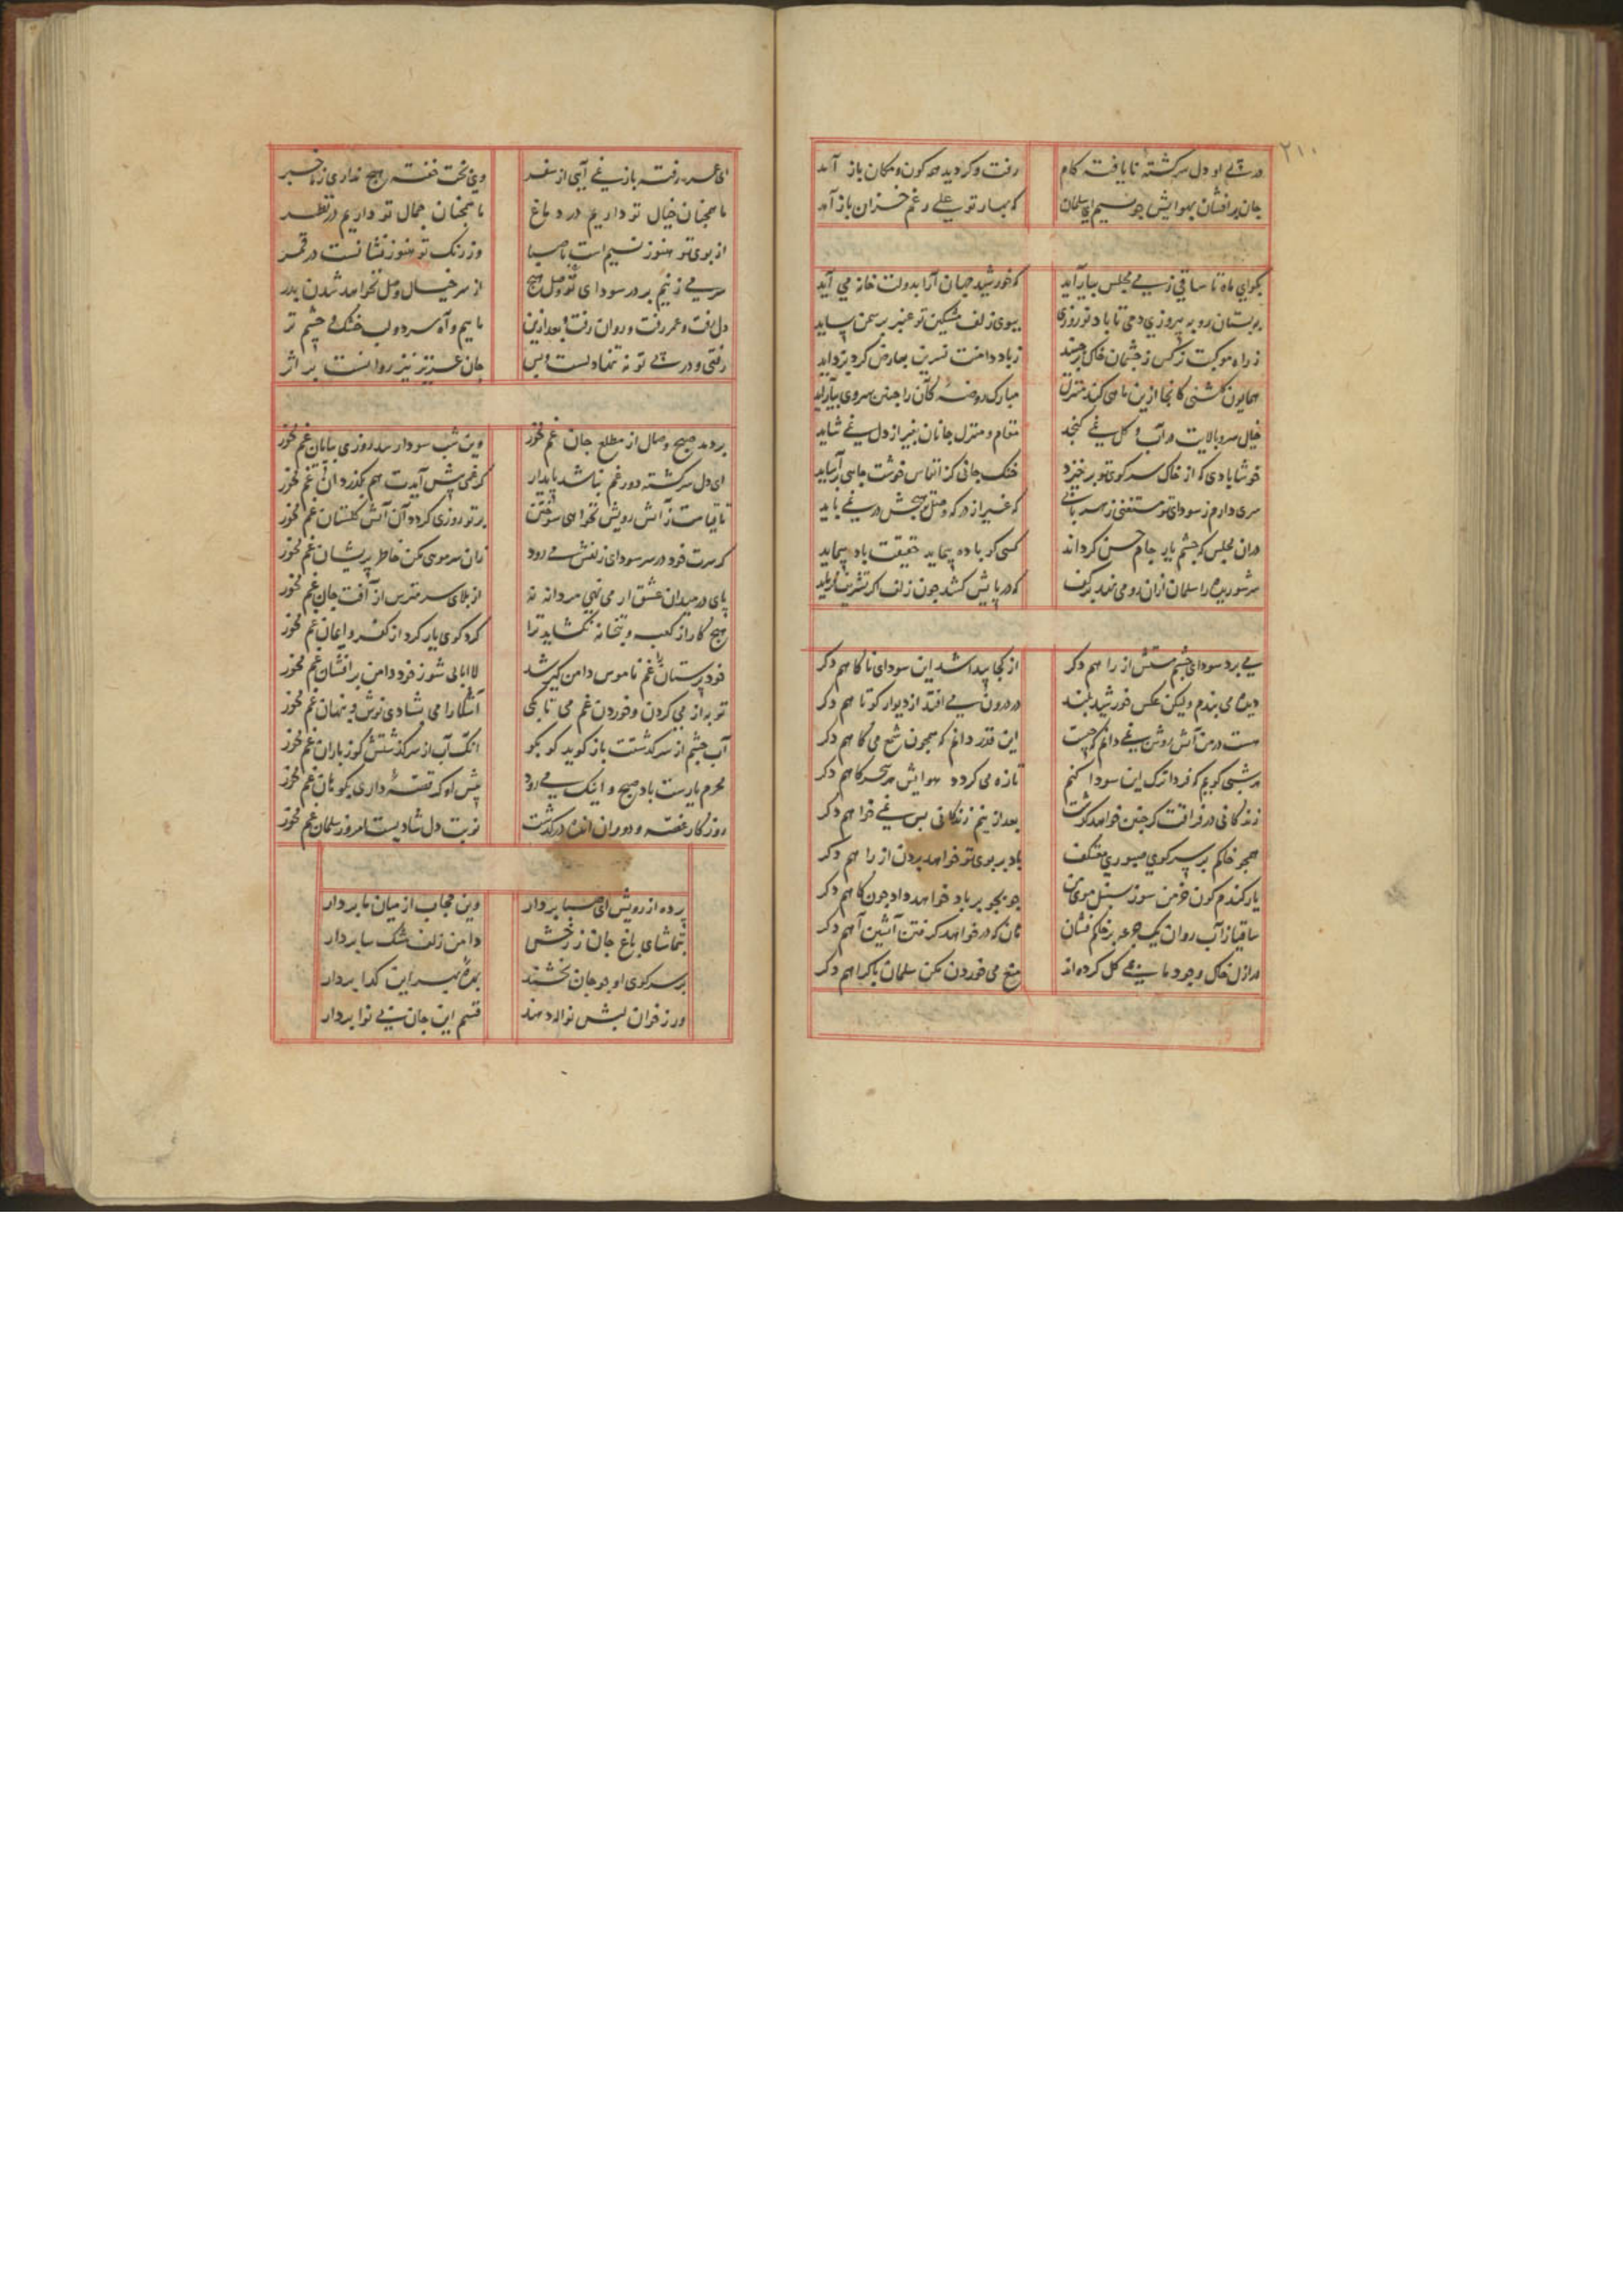 ۲۱۰
در پی او دل سرگشتهٔ نایافته کام رفت و کردید همه کون و مکان باز آمد
جان برافشان بهوایش چو نسیم ای سلمان که بهار تو علی رغم خزان باز آمد
بکوای ماه تا ساقی زمی مجلس بیاراید که خورشید جهان آرا بدولت خانه می آید
ببستان رو به پیروزی دمی تا باد نوروزی ببوی زلف مشکین تو عنبر بر سمن ساید
ز راه موکبت نرکس ز چشمان خاک برچیند ز باد دامنت نسرین بعارض کرد بزداید
همایون کلشنی کانجا ازین ماهی کند منزل مبارک روضهٔ کان را چنین سروی بیاراید
خیال سرو بالایت در آب و کل نمی کنجد مقام و منزل جانان بغیر از دل نمی شاید
خوشا بادی که از خاک سر کوی تو برخیزد خنک جانی کز انفاس خوشت جانی بیاساید
سری دارم ز سودای تو مستغنی ز هر بابی که غیر از درکه وصلت هیچش در نمی باید
دران مجلس که چشم یار جام حسن کرداند کسی کو باده پیماید حقیقت باد پیماید
سر شوریده را سلمان ازان رو می نهد بر کف که در پایش کشد چون زلف اکر تشریف فرماید
می برد سودای چشم مستش از راهم دکر از کجا پیدا شد این سودای ناکاهم دکر
دیده می بندم ولیکن عکس خورشید بلند در درون می افتد از دیوار کوتاهم دکر
هست در من آتشی روشن نمی دانم که چیست این قدر دانم که همچون شمع می کاهم دکر
هر شبی کویم که فردا ترک این سودا کنم تازه می کردد هوایش هر سحرکاهم دکر
زندکانی در فراقت کر چنین خواهد کذشت بعد ازینم زندکانی بس نمی خواهم دکر
همچو خاکم بر سر کوی صبوری معتکف باد بر بوی تو خواهد بردن از راهم دکر
یار کندم کون خرمن سوز سنبل موی من جو بجو بر باد خواهد داد چون کاهم دکر
ساقیا زآب روان یک جرعه بر خاکم فشان هان که در خواهد کرفتن آتشین آهم دکر
در ازل خاک وجود ما بمی کل کرده اند منع می خوردن مکن سلمان باکراهم دکر
ای عمر رفته باز نمی آیی از سفر وی بخت خفته هیچ نداری ز ما خبر
ما همچنان خیال تو داریم در دماغ ما همچنان جمال تو داریم در نظر
از بوی تو هنوز نسیم است با صبا وز رنک تو هنوز نشانست در قمر
سر می زنیم بر در سودای تو و هیچ از سر خیال وصل نخواهد شدن بدر
دل رفت و عمر رفت و روان رفت و بعد ازین ماییم و آه سرد و لب خشک و چشم تر
رفتی و در پی تو نه تنها دلست و بس جان عزیز نیز روانست بر اثر
بردمد صبح وصال از مطلع جان غم مخور وین شب سودا رسد روزی بپایان غم مخور
ای دل سرکشته دور غم نباشد پایدار کر غمی پیش آیدت هم بکذرد آن غم مخور
تا قیامت ز آتش رویش نخواهی سوختن بر تو روزی کردد آن آتش کلستان غم مخور
کر سرت خود در سر سودای زلفش می رود زان سر مویی مکن خاطر پریشان غم مخور
پای در میدان عشق ار می نهی مردانه نه از بلای سر مترس از آفت جان غم مخور
هیچ کار از کعبه و بتخانه نکشاید ترا کرد کوی یار کرد از کفر و ایمان غم مخور
خود پرستان را غم ناموس دامن کیر شد لاابالی شو ز خود دامن برافشان غم مخور
توبه از می کردن و خوردن غم می تا بکی آشکارا می بشادی نوش و پنهان غم مخور
آب چشم از سرکذشتت باز کوید کو بکو آنک آب از سر کذشتش کو ز باران غم مخور
محرم یارست باد صبح و اینک می رود پیش او کر قصهٔ داری بکو هان غم مخور
روزکار غصه و دوران اندُه درکذشت نوبت دل شادیست امروز سلمان غم مخور
پرده از رویش ای صبا بردار وین حجاب از میان ما بردار
بتماشای باغ جان ز رخش دامن زلف مشک سا بردار
بر سر کوی او چو جان بخشند بهرهٔ بهر این کدا بردار
ور ز خوان لبش نواله دهند قسم این جان بی نوا بردار